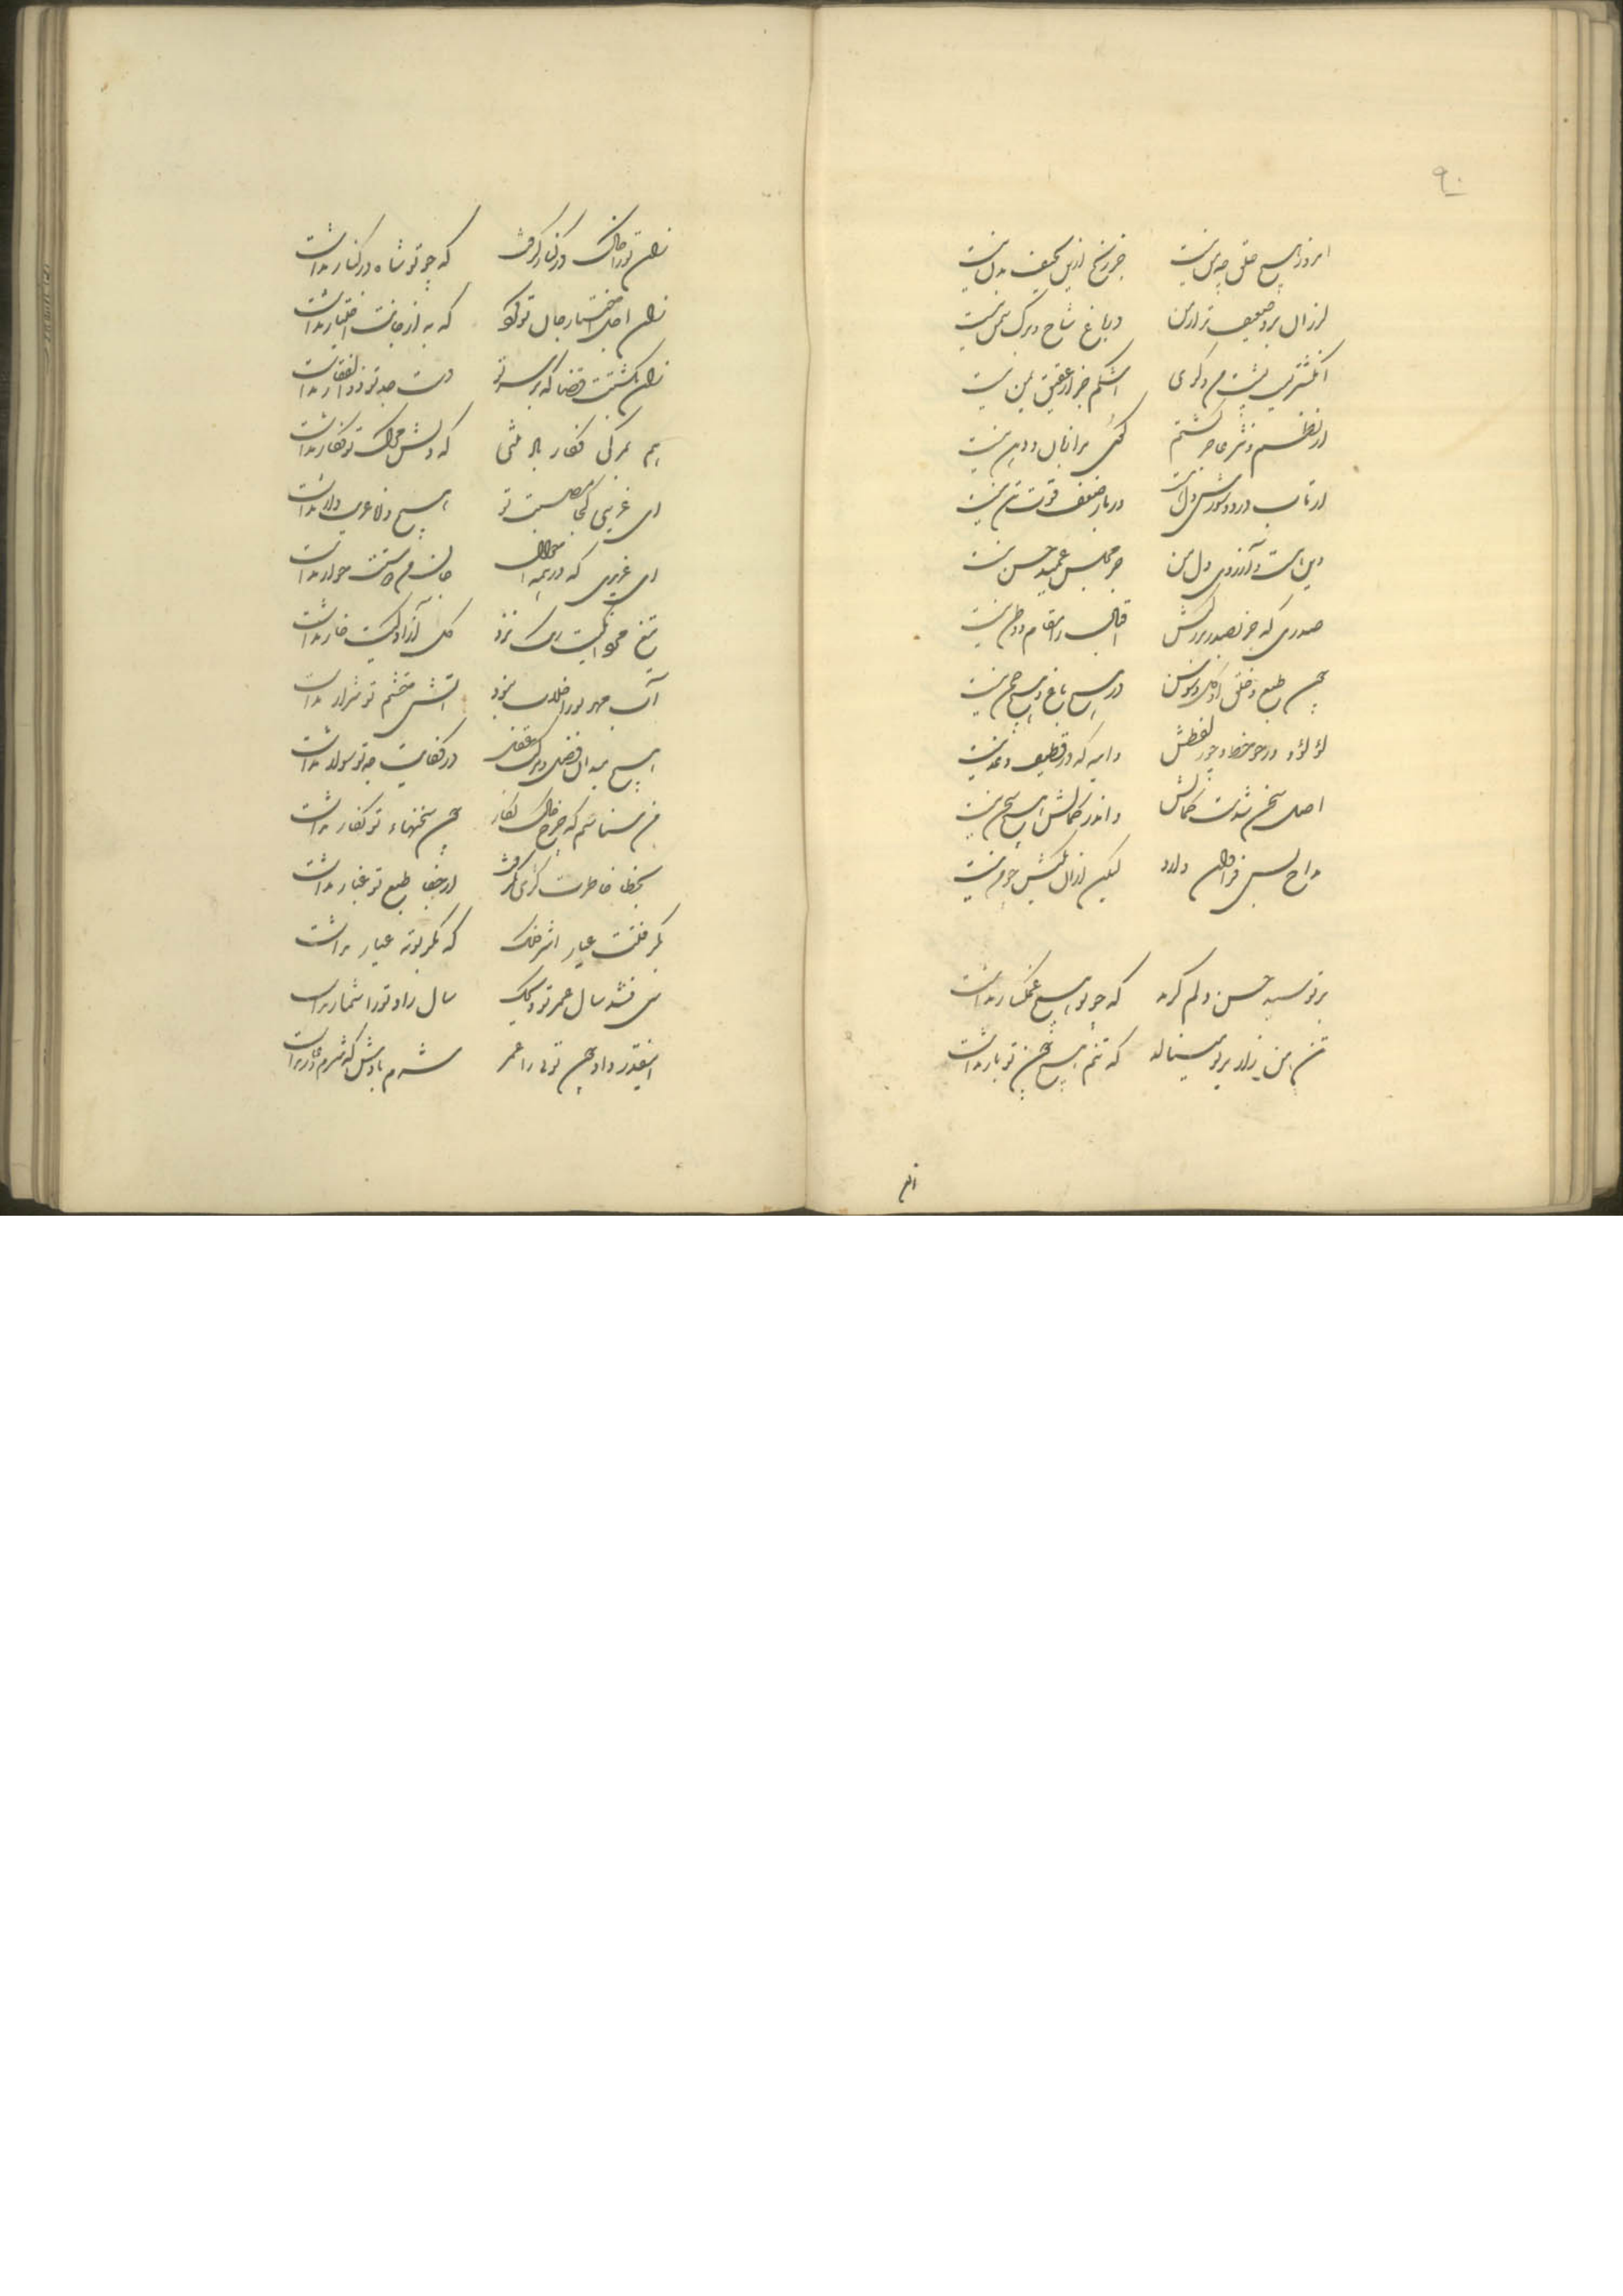 ۹۰
امروز هیچ خلق چو من نیست جز رنج ازین نحیف بدن نیست
لرزان تر و ضعیف تر از من در باغ شاخ و برگ سمن نیست
انگشتریست پشتم گوئی اشکم جز از عقیق یمن نیست
از نظم و نثر عاجز گشتم گوئی مرا زبان و دهن نیست
از تاب درد سوزش دل هست وز بار ضعف قوت تن نیست
وین هست و آرزوی دل من جز مجلس عمید حسن نیست
صدری که جز بصدر بزرگیش اقبال را مقام و وطن نیست
چون طبع و خلق او گل و سوسن در هیچ باغ و هیچ چمن نیست
لؤلؤ و در چو خط و چو لفظش والله که در قطیف و عدن نیست
اصل سخن شدست کمالش واندر کمالش هیچ سخن نیست
مداح بس فراوان دارد لیکن از آن یکیش چو من نیست
بر تو سید حسن دلم گرید که چو تو هیچ غمگسار نداشت
تن من زار بر تو مینالد که تنم هیچ چون تو یار نداشت
زان
زان ترا خاک در کنار گرفت که چو تو شاه در کنار نداشت
زان اجل اختیار جان تو کرد که به از جانت اختیار نداشت
زان بکشتت قضا که بر سر تو دست جد تو ذوالفقار نداشت
هم بمرگی فکار باد تنی که دلش مرگ تو فکار نداشت
ای غریبی کجا مصیبت تو هیچ دانا غریب وار نداشت
ای عزیزی که در همه احوال جان من دوستیت خوار نداشت
تیغ مردانگیت زنگ نزد گل آزادگیت خار نداشت
آب مهر تورا خلاب نبود آتش خشم تو شرار نداشت
هیچ میدان فضل و مرکب عقل در کفایت چو تو سوار نداشت
من شناسم که چرخ خاک نگار چون سخنهاء تو نگار نداشت
بخطا خاطرت کژی نگرفت از جفا طبع تو غبار نداشت
نگرفتت عیار اثیر فلک که مگر بوته عیار نداشت
سی نشد سال عمر تو ویحک سال زاد تورا شمار نداشت
اینقدر داد چون توئی را عمر شرم بادش که شرم و عار نداشت